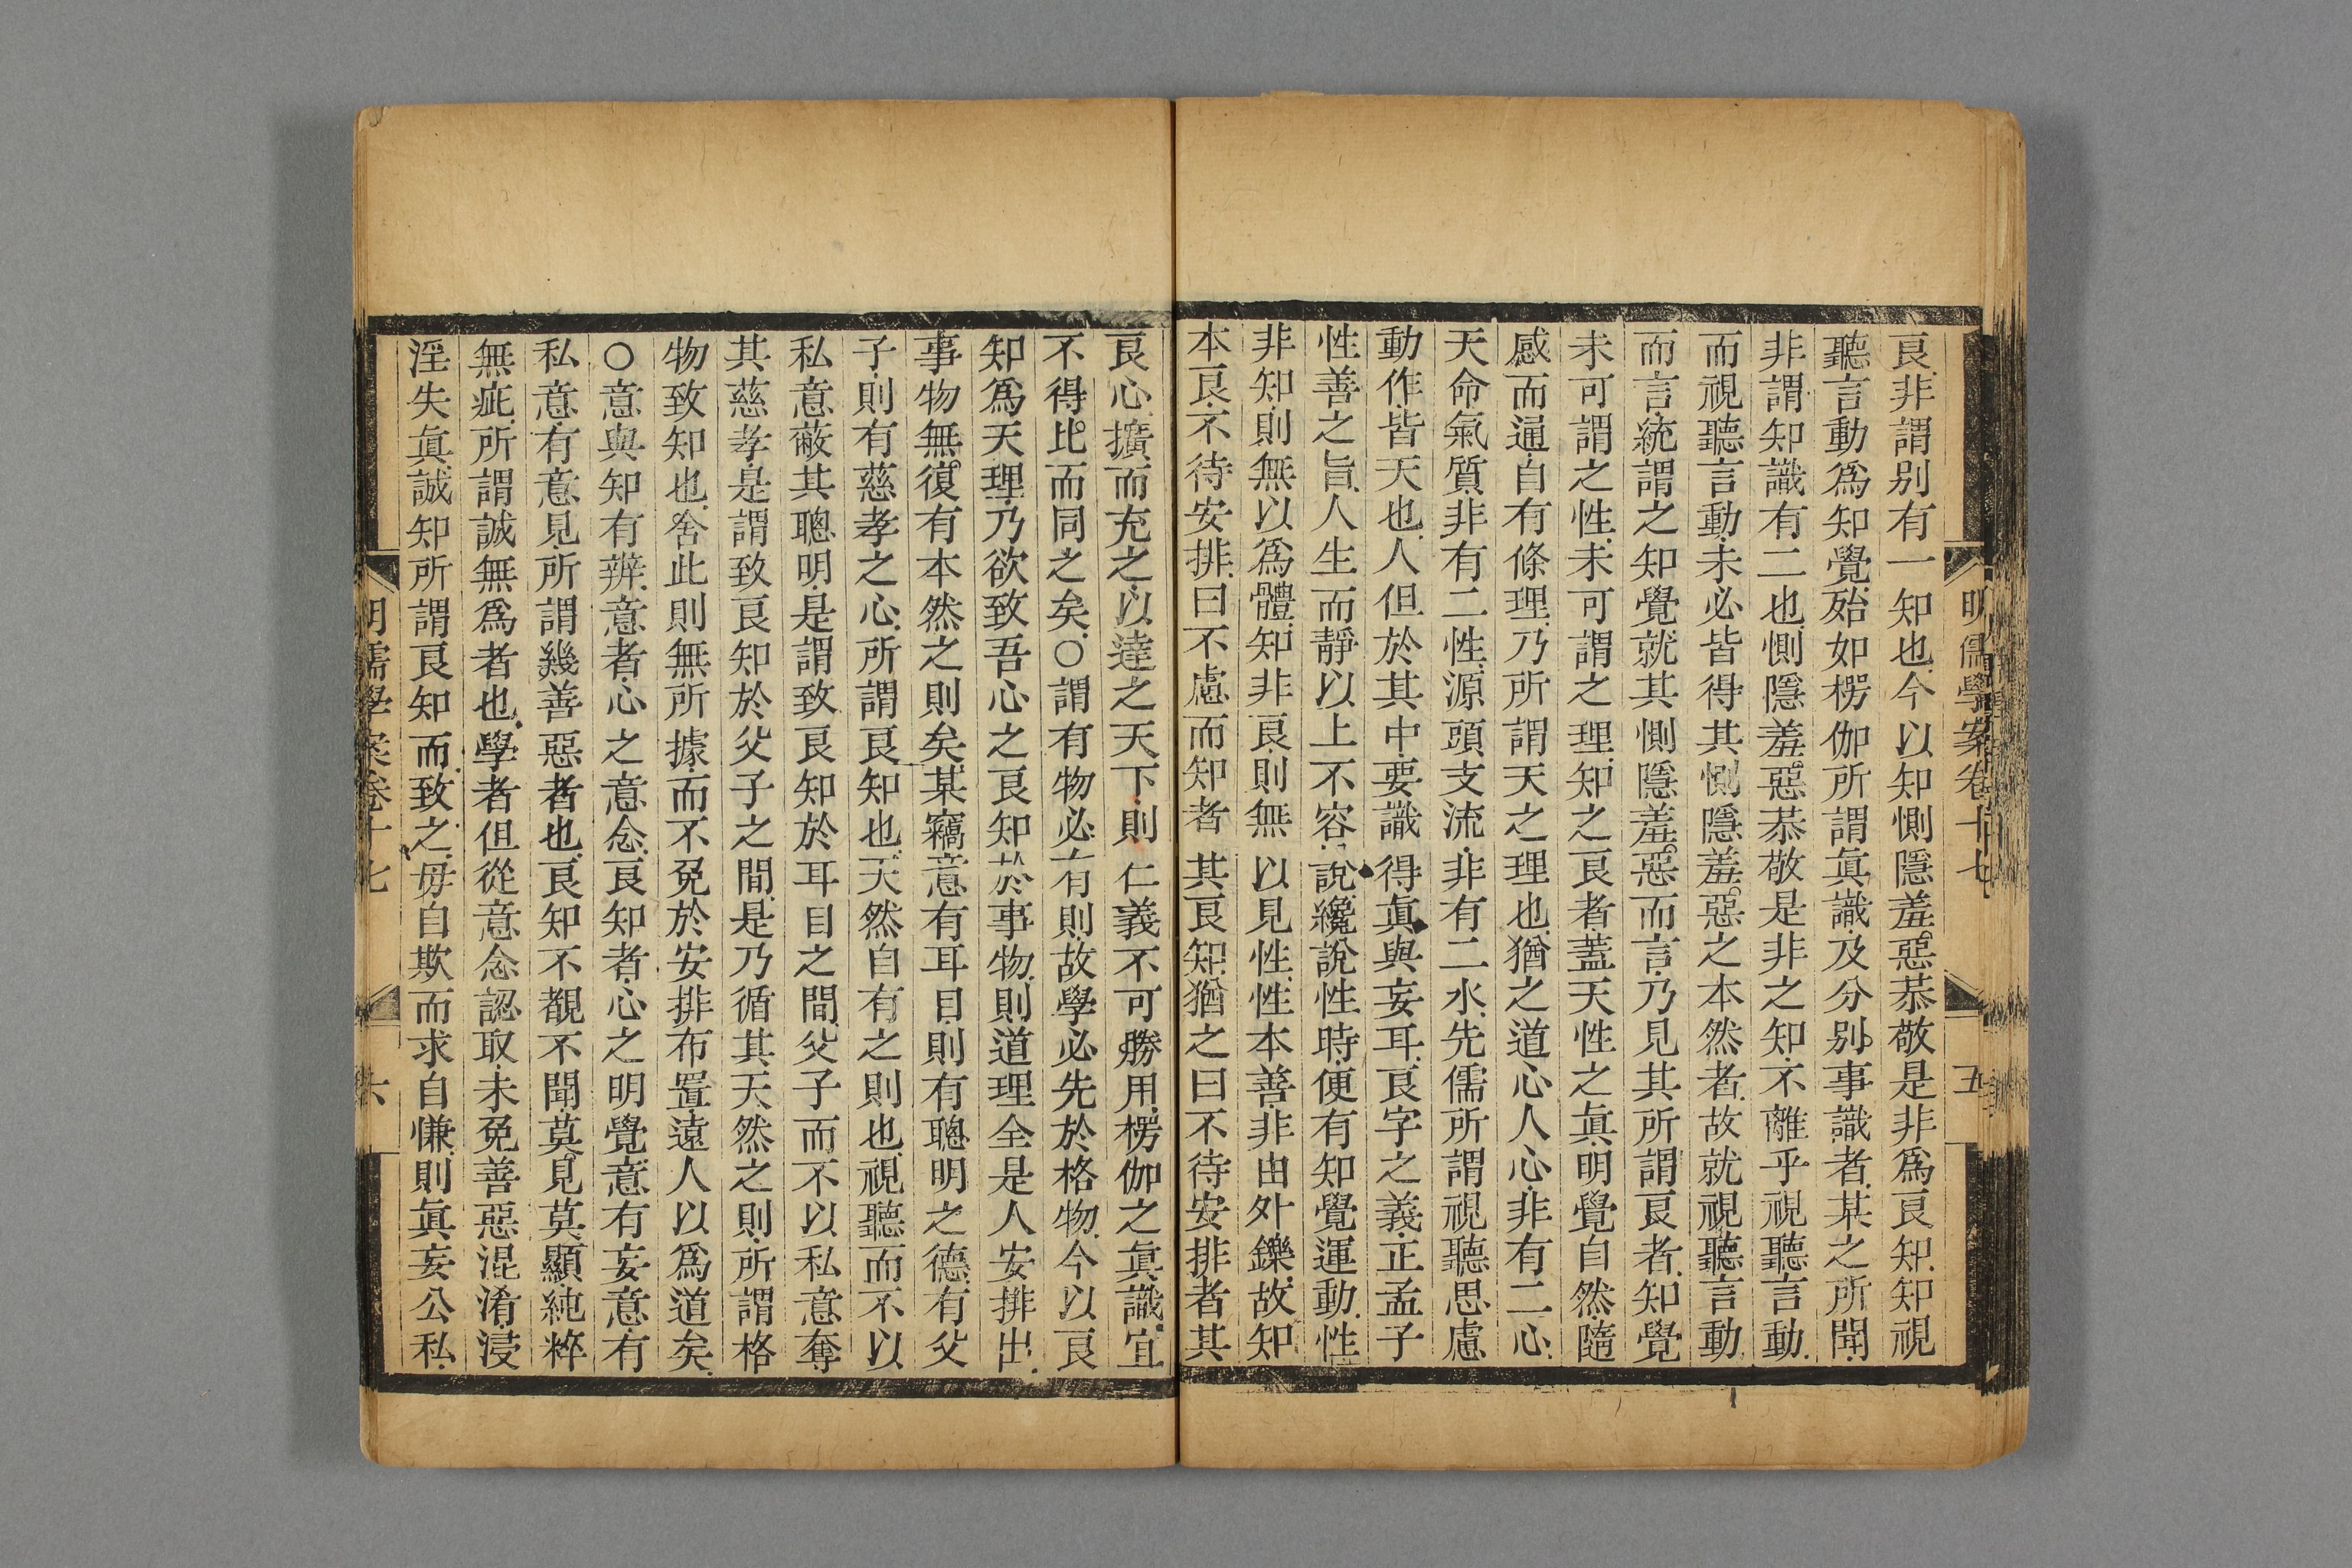 明儒學案卷十七 五
良非謂别有一知也今以知惻隱羞惡恭敬是非爲良知知視
聽言動爲知覺殆如楞伽所謂眞識及分别事識者某之所聞
非謂知識有二也惻隱羞惡恭敬是非之知不離乎視聽言動
而視聽言動未必皆得其惻隱羞惡之本然者故就視聽言動
而言統謂之知覺就其惻隱羞惡而言乃見其所謂良者知覺
未可謂之性未可謂之理知之良者蓋天性之眞明覺自然隨
感而通自有條理乃所謂天之理也猶之道心人心非有二心
天命氣質非有二性源頭支流非有二水先儒所謂視聽思慮
動作皆天也人但於其中要識得眞與妄耳良字之義正孟子
性善之旨人生而靜以上不容說纔說性時便有知覺運動性
非知則無以爲體知非良則無以見性性本善非由外鑠故知
本良不待安排曰不慮而知者其良知猶之曰不待安排者其
良心擴而充之以達之天下則仁義不可勝用楞伽之眞識宜
不得比而同之矣〇謂有物必有則故學必先於格物今以良
知爲天理乃欲致吾心之良知於事物則道理全是人安排出
事物無復有本然之則矣某竊意有耳目則有聰明之德有父
子則有慈孝之心所謂良知也天然自有之則也視聽而不以
私意蔽其聰明是謂致良知於耳目之間父子而不以私意奪
其慈孝是謂致良知於父子之間是乃循其天然之則所謂格
物致知也舍此則無所據而不免於安排布置遠人以爲道矣
〇意與知有辨意者心之意念良知者心之明覺意有妄意有
私意有意見所謂幾善惡者也良知不覩不聞莫見莫顯純粹
無疵所謂誠無爲者也學者但從意念認取未免善惡混淆浸
淫失眞誠知所謂良知而致之毋自欺而求自慊則眞妄公私
明儒學案卷十七 六